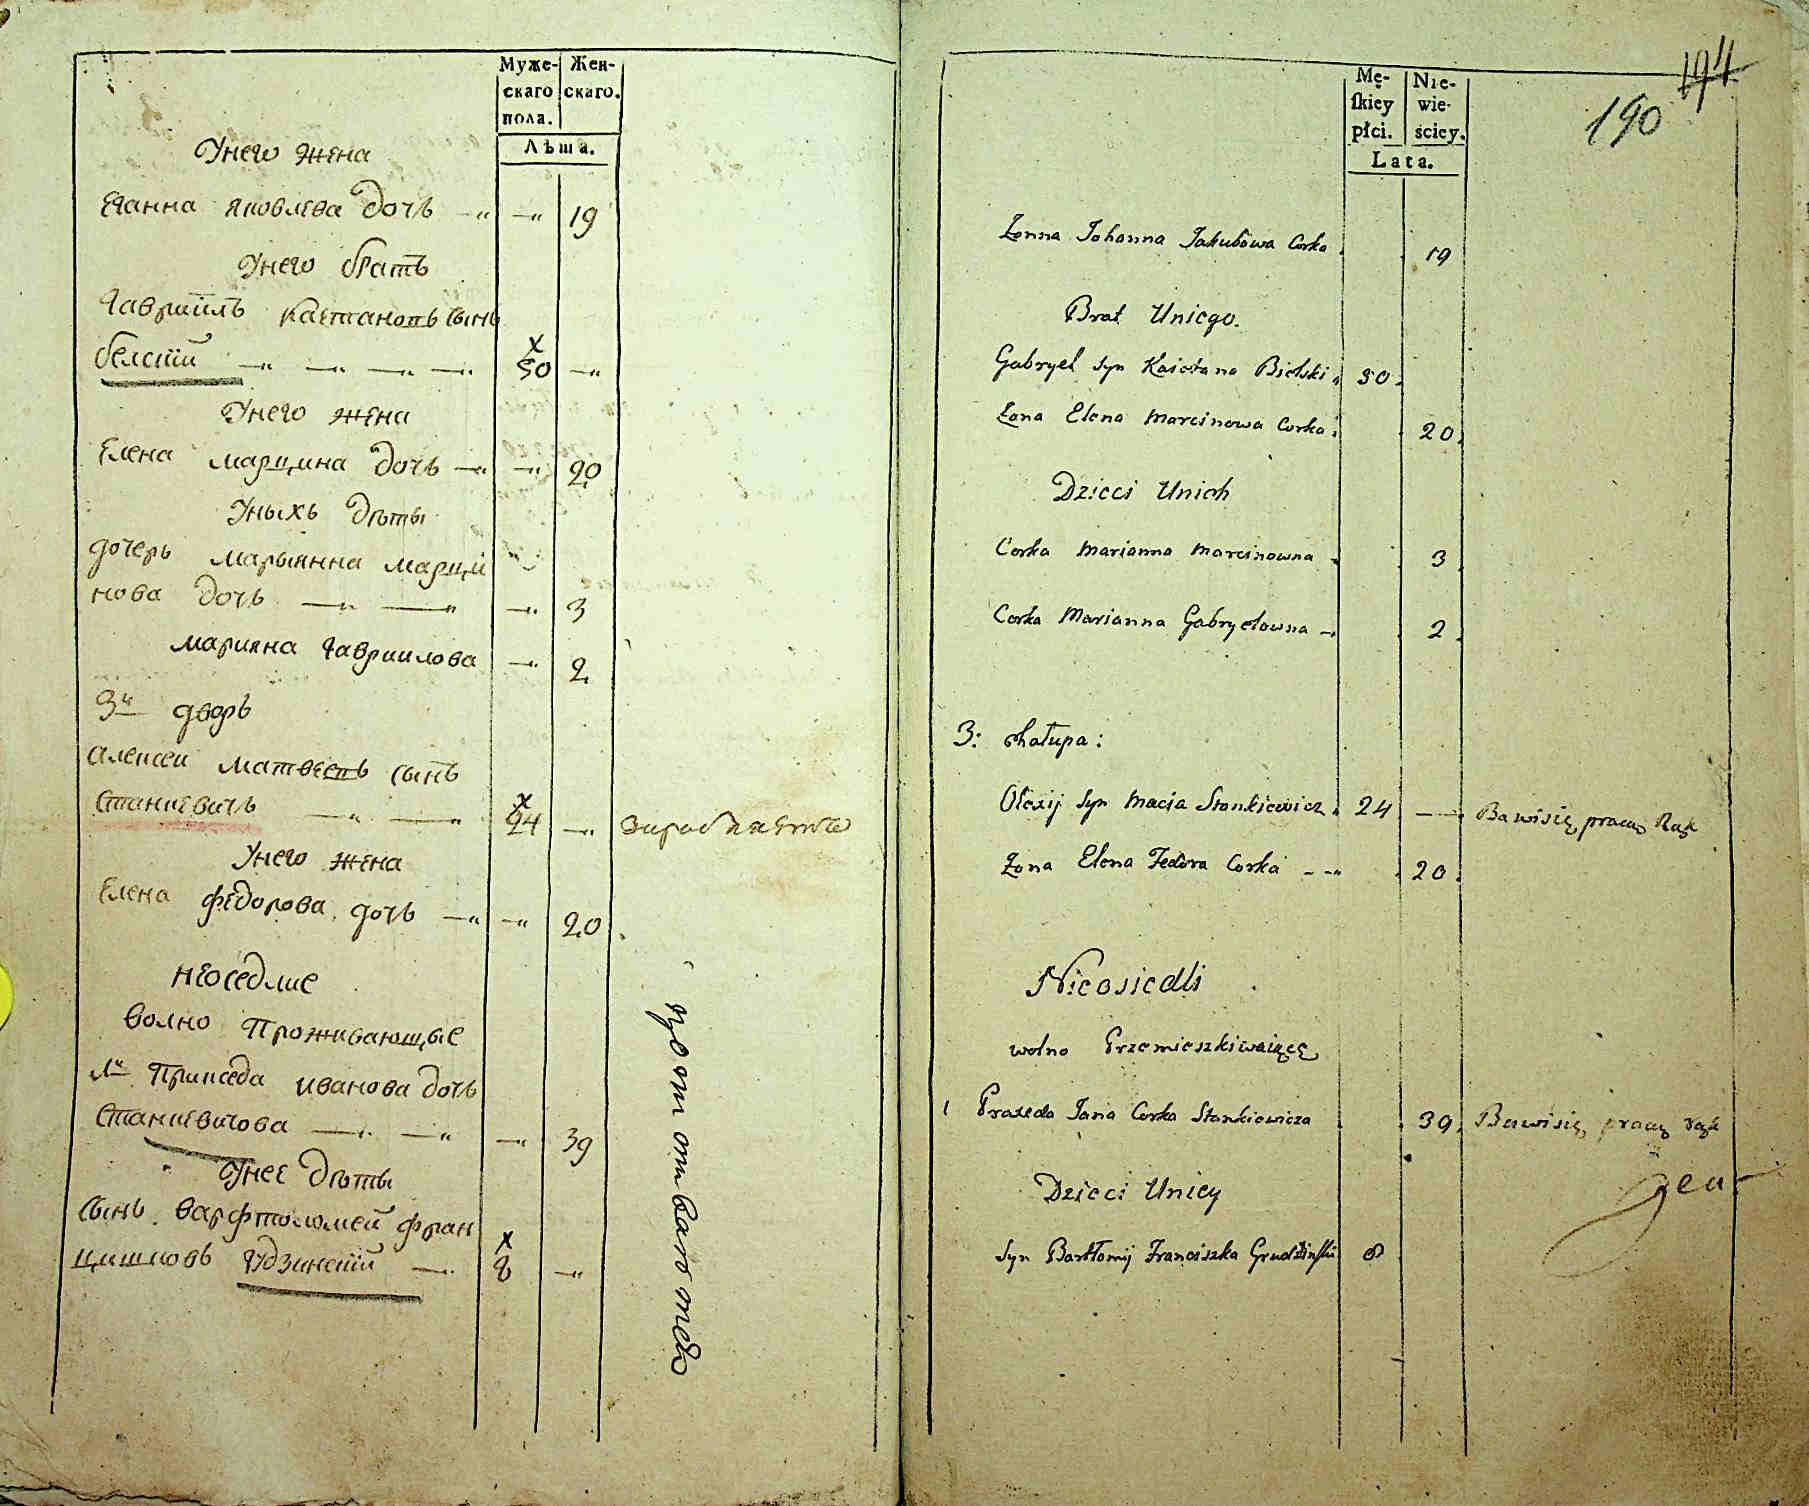 Муже- Жен-
скаго скаго.
пола.
Лѣта.
Унего жена
Еганна Яковлева дочь 19
Унего братъ
Гавриилъ Каетановъ сынъ
Белский х 50
Унего жена
Елена Марцина дочь 20
Уныхъ дѣты
дочерь Марыянна Марци
нова дочь 3
Марияна Гавриилова 2
3й дворъ
Алексеи Матвеевъ сынъ
Станкевичъ х 24
Унего жена
Елена Федорова дочь 20
Неоседлие
волно Проживающые
Праседа Иванова дочь
Станкевичова 39
Унее дѣты
сынъ Варфтоломей Фран
цишковъ х 8
194
190
Mę- Nie-
ſkiey wie-
płci. ściey.
Lata.
Żonna Johanna Jakubowa Corka 19
Brat Uniego.
Gabryel Syn Kaietana Bielski 50
Żona Elena Marcinowa Corka 20
Dzieci Unich
Corka Marianna Marcinowna 3
Corka Marianna Gabryelowna 2
3: chałupa:
Olexij Syn Macia Stankiewicz 24 Bawisię pracą Rąk
Żona Elena Fedora Corka 20
Nieosiedli
wolno Przemieszkiwaiące
1 Praxeda Jana Corka Stankiewicza 39 Bawisię pracą rąk
Dzieci Uniey
Syn Bartłomij Franciszka Grudzinſki 8